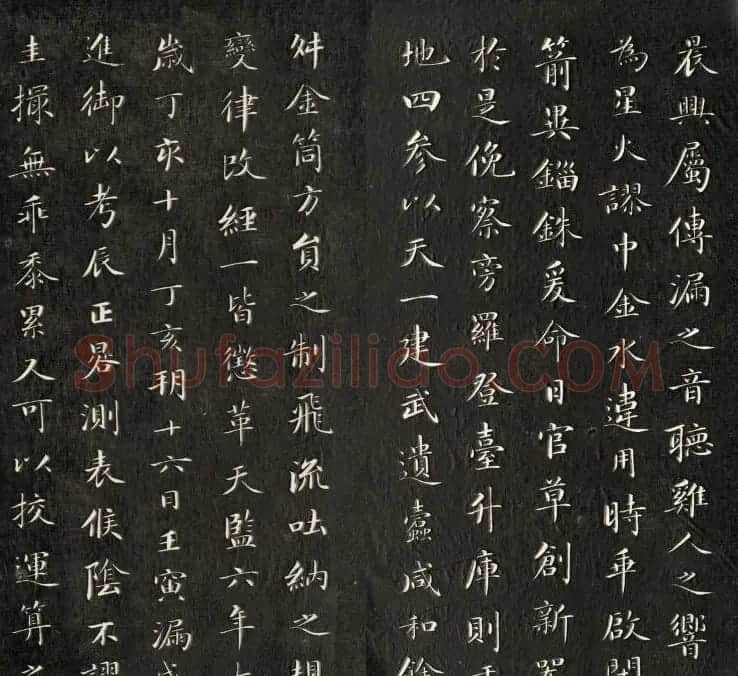 晨興屬傳漏之音聽雞人之響
為星火謬中金水違用時乖啟閉
箭異錙銖爰命日官草創新器
於是俛察旁羅登臺升庫則于
地四參以天一建武遺蠹咸和餘
舛金筒方員之制飛流吐納之規
變律改經一皆懲革天監六年太
歲丁亥十月丁亥玥十六日壬寅漏成
進御以考辰正晷測表候陰不謬
圭撮無乖黍累又可以挍運算之
Shufazilido.COM